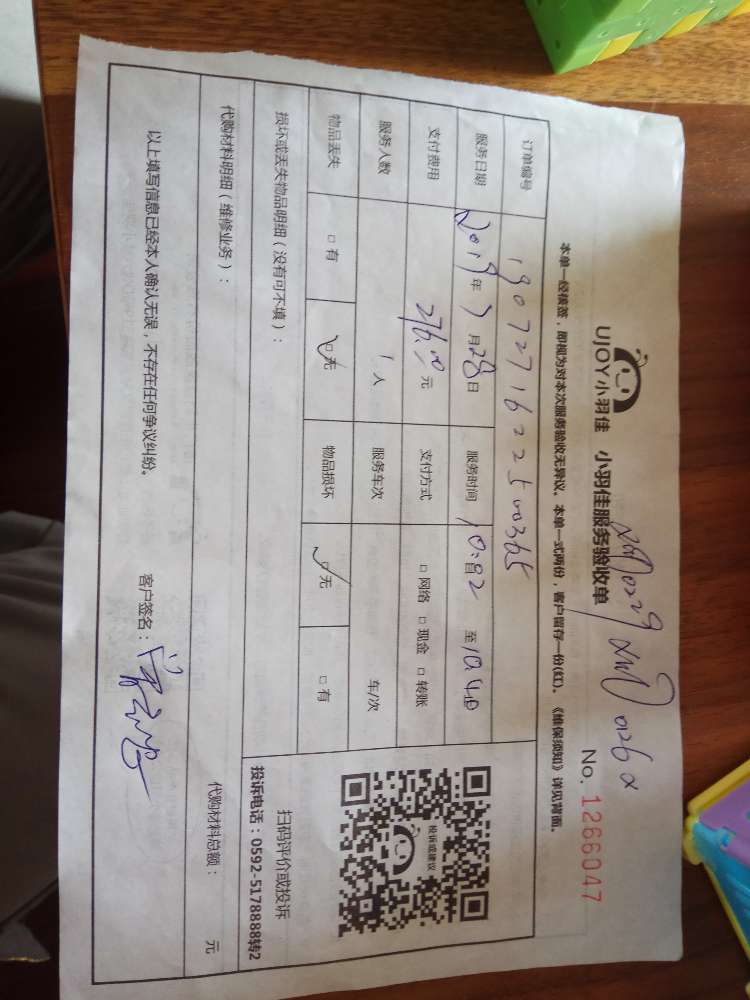 UJOY小羽佳 小羽佳服务验收单
No. 1266047
本单一经核签，即视为对本次服务验收无异议。本单一式两份，客户留存一份(红)。《维保须知》详见背面。
订单编号 1907271622500365
服务日期 2019年7月28日 服务时间 10:02 至 10:40
支付费用 276.00元 支付方式 □网络 □现金 □转账
服务人数 1人 服务车次 车/次
物品丢失 □有 □无 物品损坏 □无 □有
损坏或丢失物品明细（没有可不填）：
投诉或建议
扫码评价或投诉
投诉电话：0592-5178888转2
代购材料明细（维修业务）： 代购材料总额： 元
以上填写信息已经本人确认无误，不存在任何争议纠纷。 客户签名：